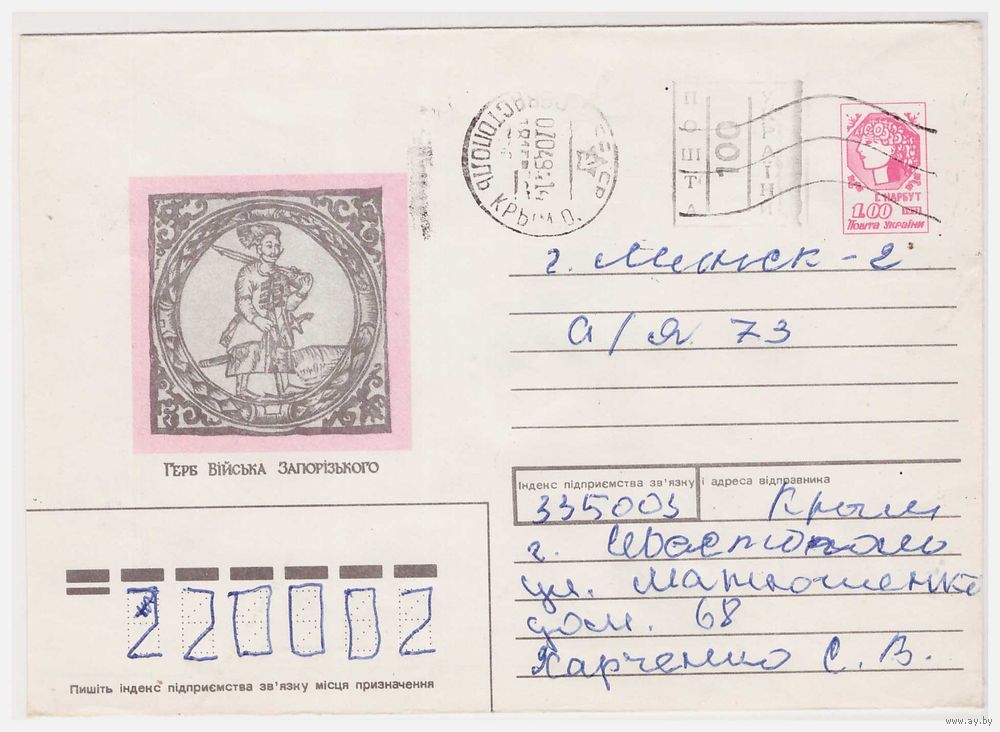 СЕВАСТОПОЛЬ
КРЫМ. О.
ПОШТА
100
УКРАЇНИ
Г. НАРБУТ
1.00
ПОШТА УКРАЇНИ
г. Минск - 2
а/я 73
ГЕРБ ВІЙСЬКА ЗАПОРІЗЬКОГО
Індекс підприємства зв'язку і адреса відправника
335003 Крым
г. Севастополь
ул. Матюшенко
дом. 68
Харченко С. В.
220002
Пишіть індекс підприємства зв'язку місця призначення
www.ay.by